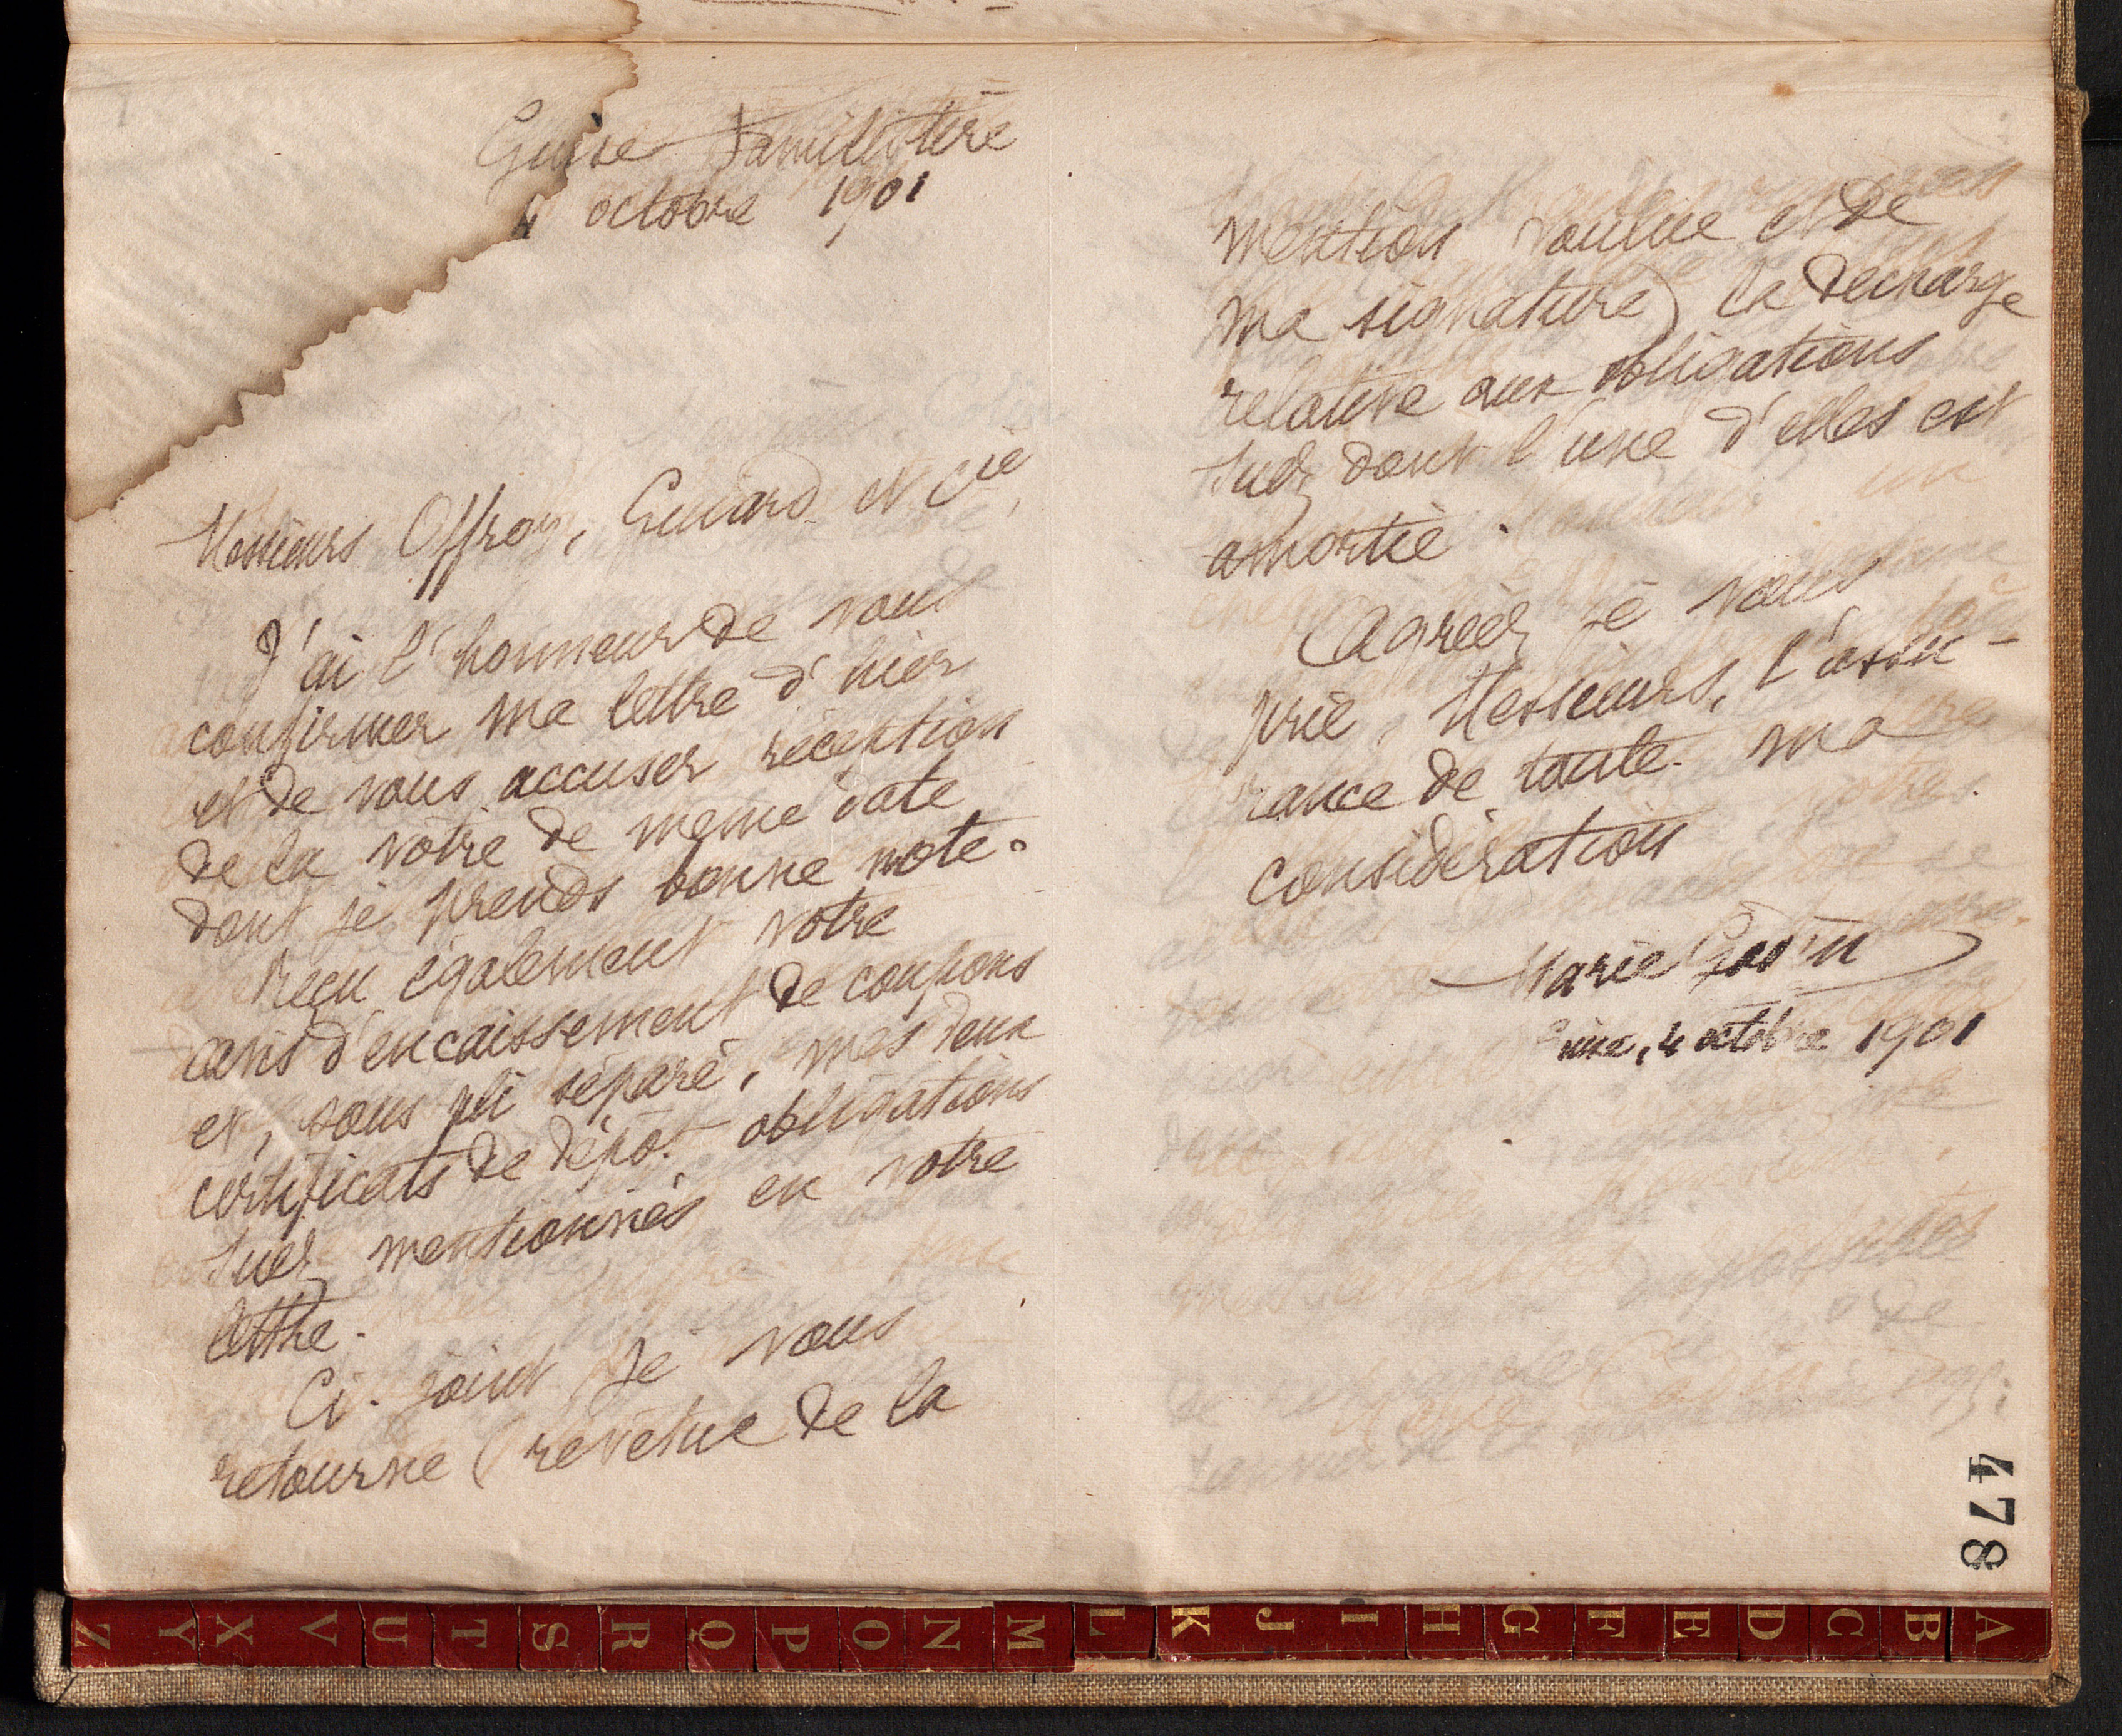 Guise Familistère
4 octobre 1901
Messieurs Offroy, Guiard et Cie,
J'ai l'honneur de vous
confirmer ma lettre d'hier
et de vous accuser réception
de la vôtre de même date
dont je prends bonne note.
Reçu également votre
avis d'encaissement de coupons
et, sous pli séparé, mes deux
certificats de dépôt obligations
Suez mentionnés en votre
lettre.
Ci-joint je vous
retourne (revêtue de la
mention voulue et de
ma signature) la décharge
relative aux obligations
Suez dont l'une d'elles est
amortie.
Agréez je vous
prie, Messieurs, l'assu-
rance de toute ma
considération
Marie Godin
4 octobre 1901
478
Z Y X V U T S R Q P O N M L K J I H G F E D C B A